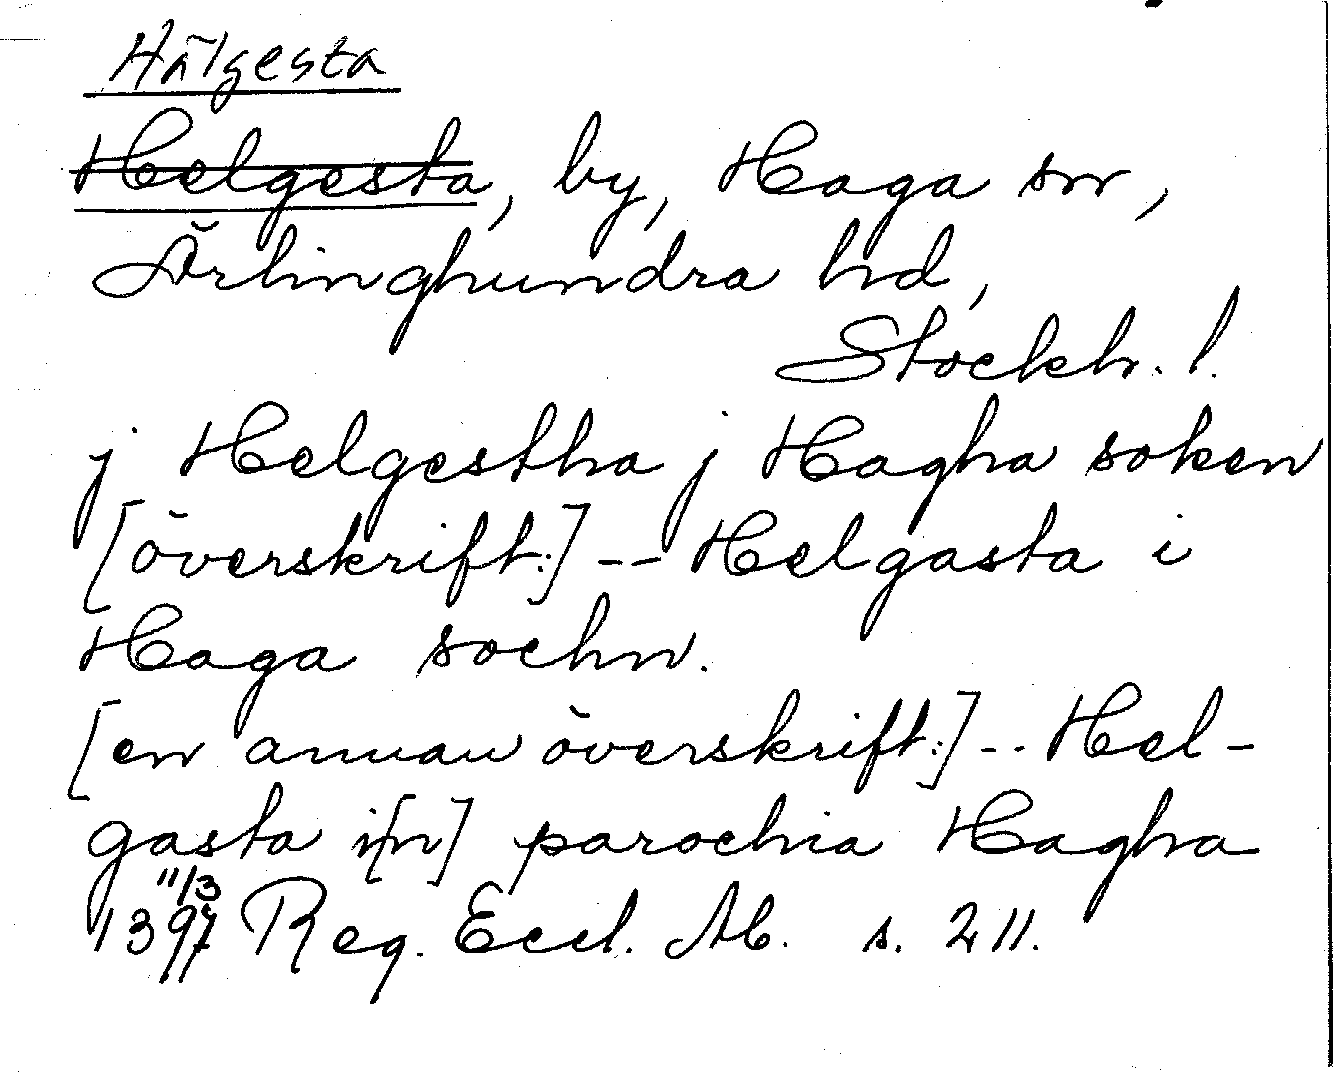 Hälgesta
Helgesta, by, Haga sn,
Ärlinghundra hd,
Stockh. l.
j Helgestha j Hagha soken
[överskrift:] -- Helgasta i
Haga sochn.
[en annan överskrift:] -- Hel-
gasta i[n] parochia Hagha
11/3
1397 Reg. Eccl. M. s. 211.